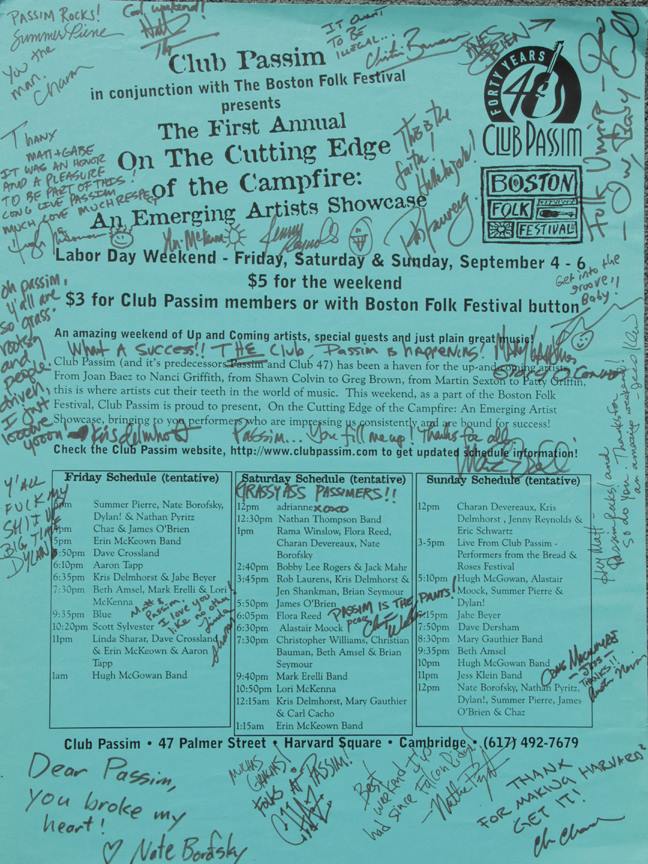 PASSIM ROCKS!
Summer Pierre
You the
man.
Charan
Cool weekend!!
IT OUGHT
TO BE
ILLEGAL...
JAMES
O'BRIEN
Club Passim
in conjunction with The Boston Folk Festival
presents
The First Annual
On The Cutting Edge
of the Campfire:
An Emerging Artists Showcase
FORTY YEARS
CLUB PASSIM
BOSTON
FOLK
FESTIVAL
THANX
MATT+GABE
IT WAS AN HONOR
AND A PLEASURE
TO BE PART OF THIS!
LONG LIVE PASSIM
MUCH LOVE MUCH RESPECT
This is the
faith!
Hallelujah!
Jenny
Reynolds
Labor Day Weekend - Friday, Saturday & Sunday, September 4 - 6
$5 for the weekend
$3 for Club Passim members or with Boston Folk Festival button
Get into the
groove,
Baby!
oh passim,
y'all are
so grass
rootsy
and
people
driven,
I just
looove
yooou
Kris Delmhorst
An amazing weekend of Up and Coming artists, special guests and just plain great music!
What A SUCCESS!! THE Club Passim is happening!
Club Passim (and it's predecessors Passim and Club 47) has been a haven for the up-and-coming artists.
From Joan Baez to Nanci Griffith, from Shawn Colvin to Greg Brown, from Martin Sexton to Patty Griffin,
this is where artists cut their teeth in the world of music. This weekend, as a part of the Boston Folk
Festival, Club Passim is proud to present, On the Cutting Edge of the Campfire: An Emerging Artist
Showcase, bringing to you performers who are impressing us consistently and are bound for success!
Passim... You fill me up! Thanks for all
Check the Club Passim website, http://www.clubpassim.com to get updated schedule information!
Y'ALL
FUCK MY
SHIT UP
BIG TIME
DYLAN!
Friday Schedule (tentative)
Summer Pierre, Nate Borofsky,
Dylan! & Nathan Pyritz
Chaz & James O'Brien
5pm Erin McKeown Band
5:50pm Dave Crossland
6:10pm Aaron Tapp
6:35pm Kris Delmhorst & Jabe Beyer
7:30pm Beth Amsel, Mark Erelli & Lori
McKenna
9:35pm Blue
10:20pm Scott Sylvester
11pm Linda Sharar, Dave Crossland
& Erin McKeown & Aaron
Tapp
1am Hugh McGowan Band
Matt &
Passim,
I love you
like no other
Saturday Schedule (tentative)
GRASSYASS PASSIMERS!!
12pm adrianne xoxo
12:30pm Nathan Thompson Band
1pm Rama Winslow, Flora Reed,
Charan Devereaux, Nate
Borofsky
2:40pm Bobby Lee Rogers & Jack Mahr
3:45pm Rob Laurens, Kris Delmhorst &
Jen Shankman, Brian Seymour
5:50pm James O'Brien
6:05pm Flora Reed
6:30pm Alastair Moock
7:30pm Christopher Williams, Christian
Bauman, Beth Amsels & Brian
Seymour
9:40pm Mark Erelli Band
10:50pm Lori McKenna
12:15am Kris Delmhorst, Mary Gauthier
& Carl Cacho
1:15am Erin McKeown Band
PASSIM IS THE PANTS!
peace,
Sunday Schedule (tentative)
12pm Charan Devereaux, Kris
Delmhorst , Jenny Reynolds &
Eric Schwartz
3-5pm Live From Club Passim -
Performers from the Bread &
Roses Festival
5:10pm Hugh McGowan, Alastair
Moock, Summer Pierre &
Dylan!
Jabe Beyer
7:50pm Dave Dersham
8:30pm Mary Gauthier Band
9:35pm Beth Amsel
10pm Hugh McGowan Band
11pm Jess Klein Band
12pm Nate Borofsky, Nathan Pyritz,
Dylan!, Summer Pierre, James
O'Brien & Chaz
THANKS!!
Club Passim • 47 Palmer Street • Harvard Square • Cambridge • (617) 492-7679
Dear Passim,
you broke my
heart!
♡ Nate Borofsky
MUCHAS
GRACIAS!
FOLKS AT PASSIM!
CHAZ
Best
weekend I've
had since Falcon Ridge!
THANK
FOR MAKING HARVARD²
GET IT!